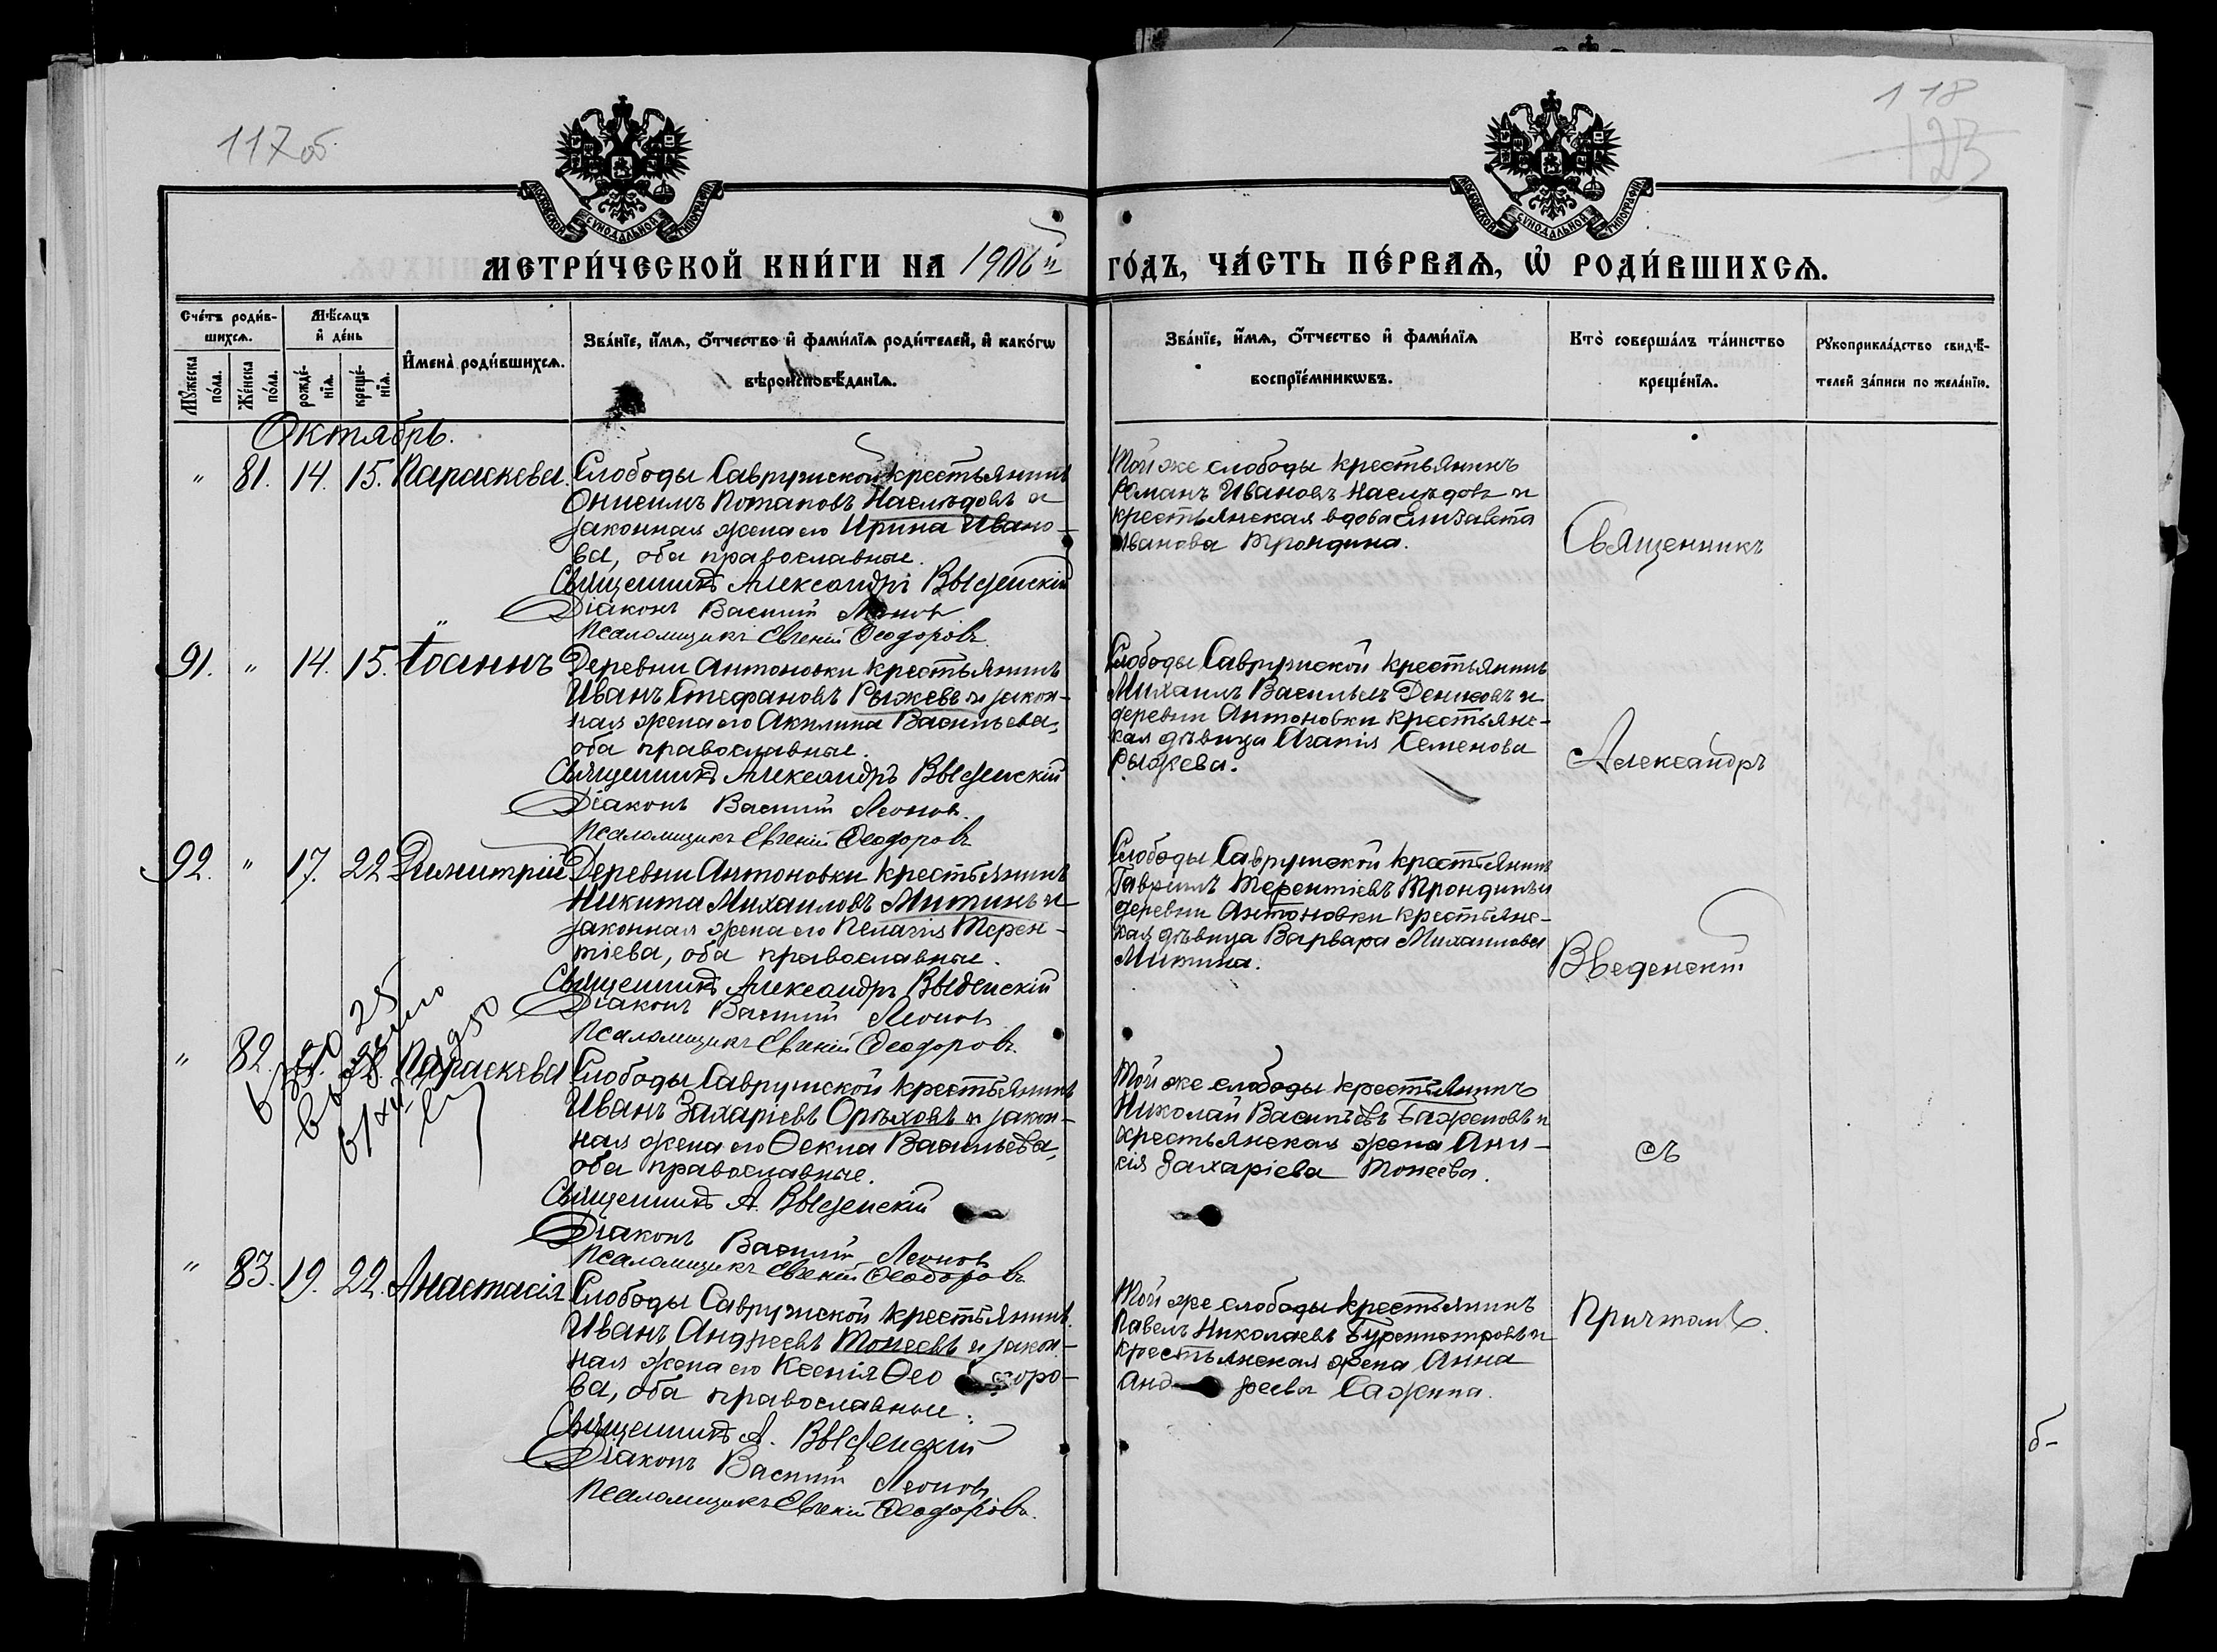 117 об.
118
123
МОСКОВСКОЙ СУНОДАЛЬНОЙ ТИПОГРАФІИ
МОСКОВСКОЙ СУНОДАЛЬНОЙ ТИПОГРАФІИ
МЕТРИ́ЧЕСКОЙ КНИ́ГИ НА 1906й
ГО́ДЪ, ЧА́СТЬ ПЕ́РВАѦ, Ѡ҆ РОДИ́ВШИХСѦ.
Сче́тъ роди́в-
шихсѧ.
Мѣ́сѧцъ
и҆ де́нь
Мꙋ́жеска по́ла.
Же́нска по́ла.
рожде́-
нїѧ.
креще́-
нїѧ.
И҆мена̀ роди́вшихсѧ.
Зва́нїе, и҆́мѧ, ѻ҆́тчество и҆ фами́лїѧ роди́телей, и҆ како́гѡ
вѣроисповѣ́данїѧ.
Зва́нїе, и҆́мѧ, ѻ҆́тчество и҆ фами́лїѧ
воспрїе́мникѡвъ.
Кто̀ соверша́лъ та́инство
креще́нїѧ.
Рꙋкоприкла́дство свидѣ́-
телей за́писи по жела́нїю.
Октябрь.
" 81. 14. 15. Параскева.
Слободы Саврушской крестьянинъ
Онисимъ Потаповъ Наслѣдовъ и
законная жена его Ирина Ивано-
ва, оба православные.
Священникъ Александръ Введенскій
Діаконъ Василій Леонов
Псаломщикъ Евгеній Ѳеодоровъ
Той же слободы крестьянинъ
Романъ Ивановъ Наслѣдовъ и
крестьянская вдова Елизавета
Иванова Трондина.
91. " 14. 15. Іоаннъ
Деревни Антоновки крестьянинъ
Иванъ Стефановъ Рыжевъ и закон-
ная жена его Акилина Васильева,
оба православные.
Священникъ Александръ Введенскій
Діаконъ Василій Леоновъ.
Псаломщикъ Евгеній Ѳеодоровъ
Слободы Саврушской крестьянинъ
Михаилъ Васильевъ Денисовъ и
деревни Антоновки крестьянс-
кая дѣвица Агапія Семенова
Рыжева.
92. " 17. 22 Димитрій
Деревни Антоновки крестьянинъ
Никита Михаиловъ Митинъ и
законная жена его Пелагія Терен-
тіева, оба православные.
Священникъ Александръ Введенскій
Діаконъ Василій Леонов
Псаломщикъ Евгеній Ѳеодоровъ.
Слободы Саврушской крестьянинъ
Гавріилъ Терентіевъ Трондинъ и
деревни Антоновки крестьянс-
кая дѣвица Варвара Михаилова
Митина.
" 82. 28. Параскева
Слободы Саврушской крестьянинъ
Иванъ Захаріевъ Орѣховъ и закон-
ная жена его Ѳекла Васильева,
оба православные.
Священникъ А. Введенскій
Діаконъ Василій Леонов
Псаломщикъ Евгеній Ѳеодоровъ
Той же слободы крестьянинъ
Николай Васильевъ Баженовъ и
крестьянская жена Ани-
сія Захаріева Мокеева.
" 83. 19. 22. Анастасія
Слободы Саврушской крестьянинъ
Иванъ Андреевъ Мокеевъ и закон-
ная жена его Ксенія Ѳео доро-
ва, оба православные.
Священникъ А. Введенскій
Діаконъ Василій Леоновъ
Псаломщикъ Евгеній Ѳеодоровъ.
Той же слободы крестьянинъ
Павелъ Николаевъ и
крестьянская жена Анна
Анд реева Сажина.
Священникъ
Александръ
Введенскій
съ
Причтомъ.